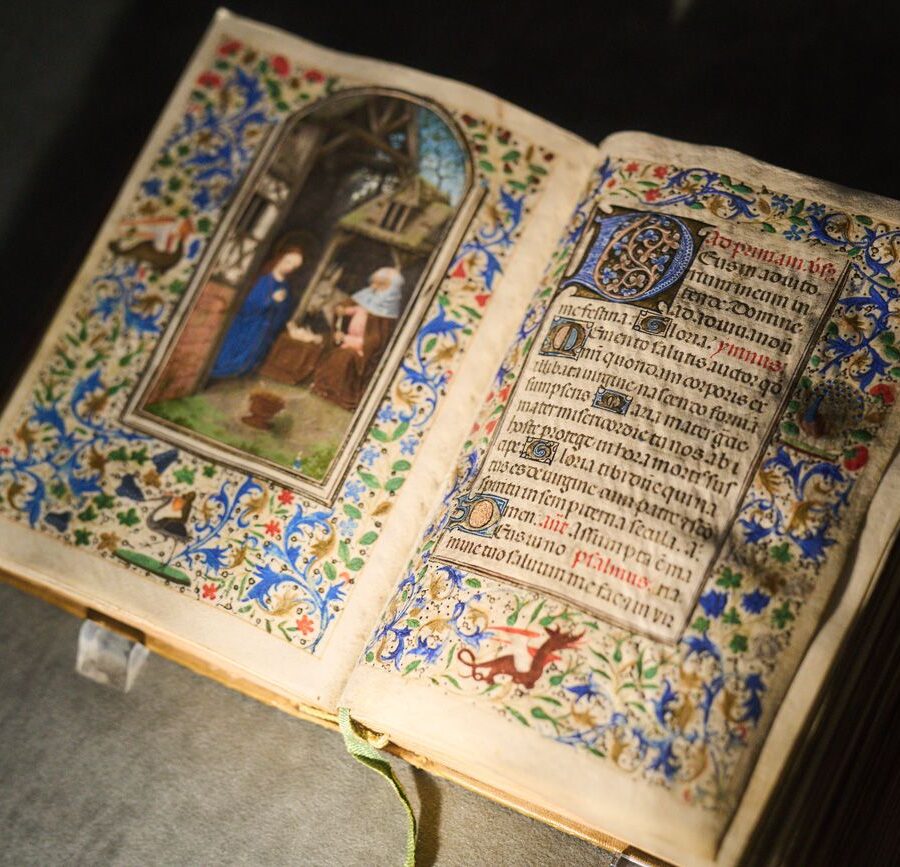 Ad primam. vs
Deus in adiuto
rium meum in
tende. Domine
ad adiuuandū
me festina. Gloria. ymnus.
Memento salutis auctor qd
nri quondam corporis ex
illibata uirgine nascendo formā
sumpseris. Maria mater gr̄e
mater misericordie tu nos ab
hoste protege in hora mortis sus
cipe. Gloria tibi domine qui na
tus es de uirgine cum patre et sc̄o
spiritu in sempiterna secula. A
men. ant. Assumpta ē ma
Deus in no psalmus. ria.
mine tuo saluum me fac et in vir